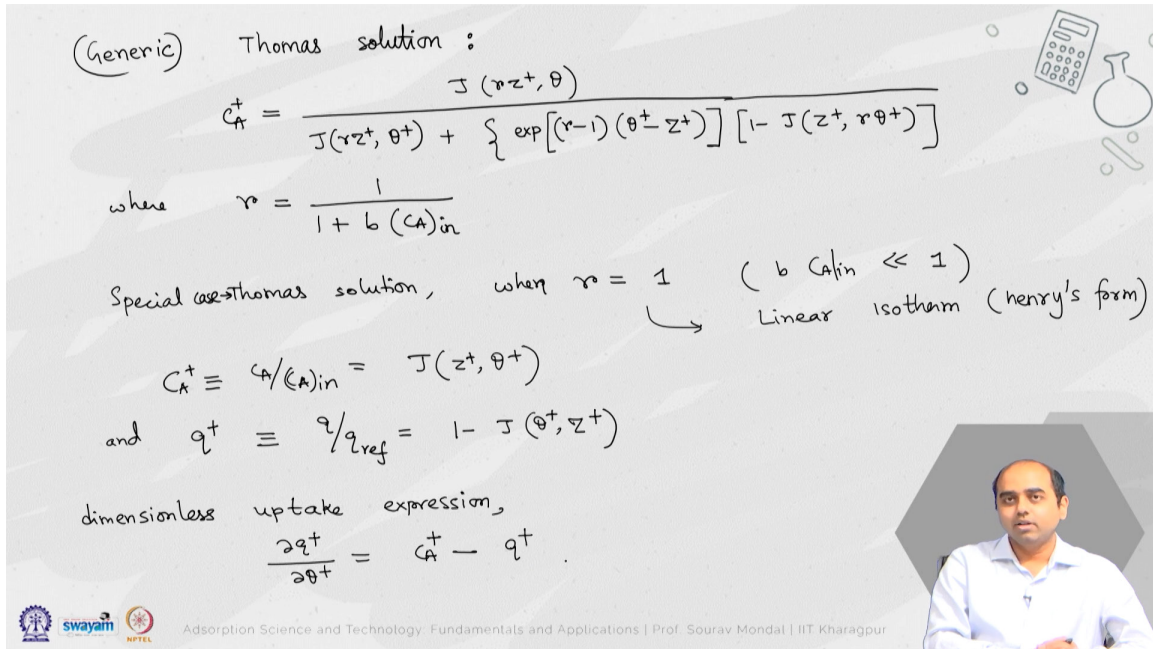 (Generic) Thomas solution :
C_A^+ = J (rz^+, θ) / J(rz^+, θ^+) + { exp[(r-1) (θ^+ - z^+)] ] [1- J(z^+, rθ^+)]
where r = 1 / 1 + b (C_A)in
Special case→Thomas solution, when r = 1 ( b C_A|in << 1 )
Linear isotherm (henry's form)
C_A^+ ≡ C_A/(C_A)in = J(z^+, θ^+)
and q^+ ≡ q/q_ref = 1- J (θ^+, z^+)
dimensionless uptake expression,
∂q^+/∂θ^+ = C_A^+ - q^+ .
swayam
NPTEL
Adsorption Science and Technology: Fundamentals and Applications | Prof. Sourav Mondal | IIT Kharagpur